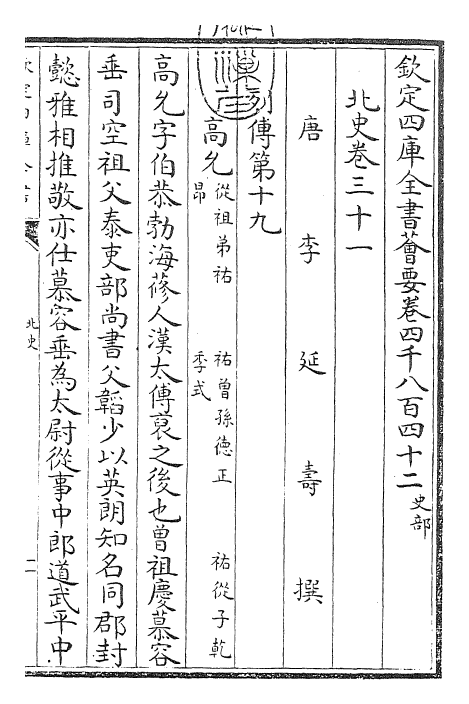 欽定四庫全書薈要卷四千八百四十二史部
北史卷三十一
唐李延壽撰
列傳第十九
高允從祖弟祐 祐曾孫德正 祐從子乾
昂 季式
高允字伯恭勃海蓚人漢太傅裒之後也曾祖慶慕容
垂司空祖父泰吏部尚書父韜少以英朗知名同郡封
懿雅相推敬亦仕慕容垂為太尉從事中郎道武平中
北史
二